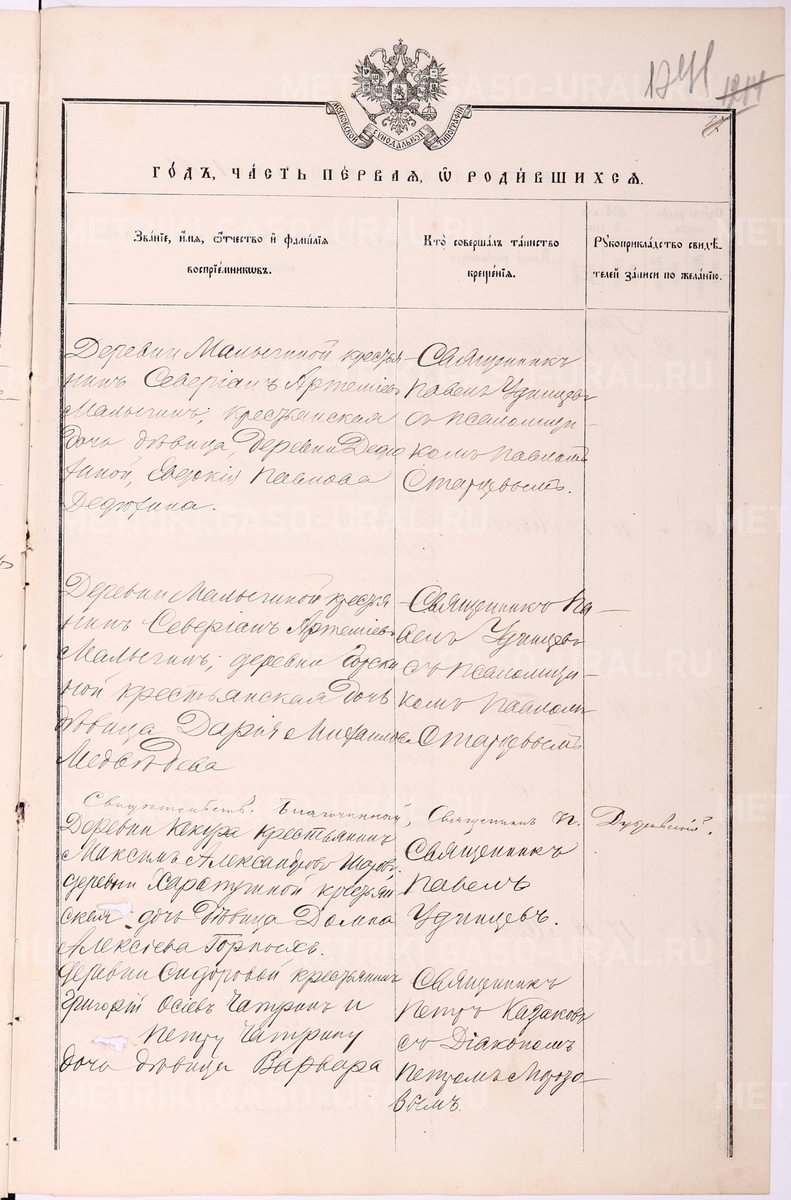 1291
1214
МОСКОВСКОЙ СУНОДАЛЬНОЙ ТИПОГРАФІИ
ГОДЪ, ЧАСТЬ ПЕРВАЯ, Ѡ РОДИВШИХСЯ.
Званіе, имя, ѿчество и фамилія воспріемникωвъ.
Кто совершалъ таинство крещенія.
Рукоприкладство свидѣтелей записи по желанію.
Деревни Малыгиной крестья-
нинъ Северіанъ Артеміевъ
Малыгинъ; крестьянская
дочь дѣвица, деревни Дедю-
хиной, Евдокія Павлова
Дедюхина.
Священникъ
Павелъ Удинцевъ
съ псаломщи-
комъ Павломъ
Старцевымъ.
Деревни Малыгиной крестья-
нинъ Северіанъ Артеміевъ
Малыгинъ; деревни
ной крестьянская дочь
дѣвица Дарія Михаилова
Медвѣдева
Священникъ Па-
велъ Удинцевъ
съ псаломщи-
комъ Павломъ
Старцевымъ
Свидѣтельств. Благочинный, Священникъ П.
Деревни Кекура крестьянинъ
Максимъ Александровъ
деревни крестьян-
ская дочь дѣвица Домна
Алексіева Горныхъ.
Священникъ
Павелъ
Удинцевъ.
деревни Сидоровой крестьянинъ
Григорій Осіевъ Чапуринъ и
Петру Чапурину
дочь дѣвица Варвара
Священникъ
Петръ Казаковъ
съ Діакономъ
Петромъ Морозо-
вымъ.